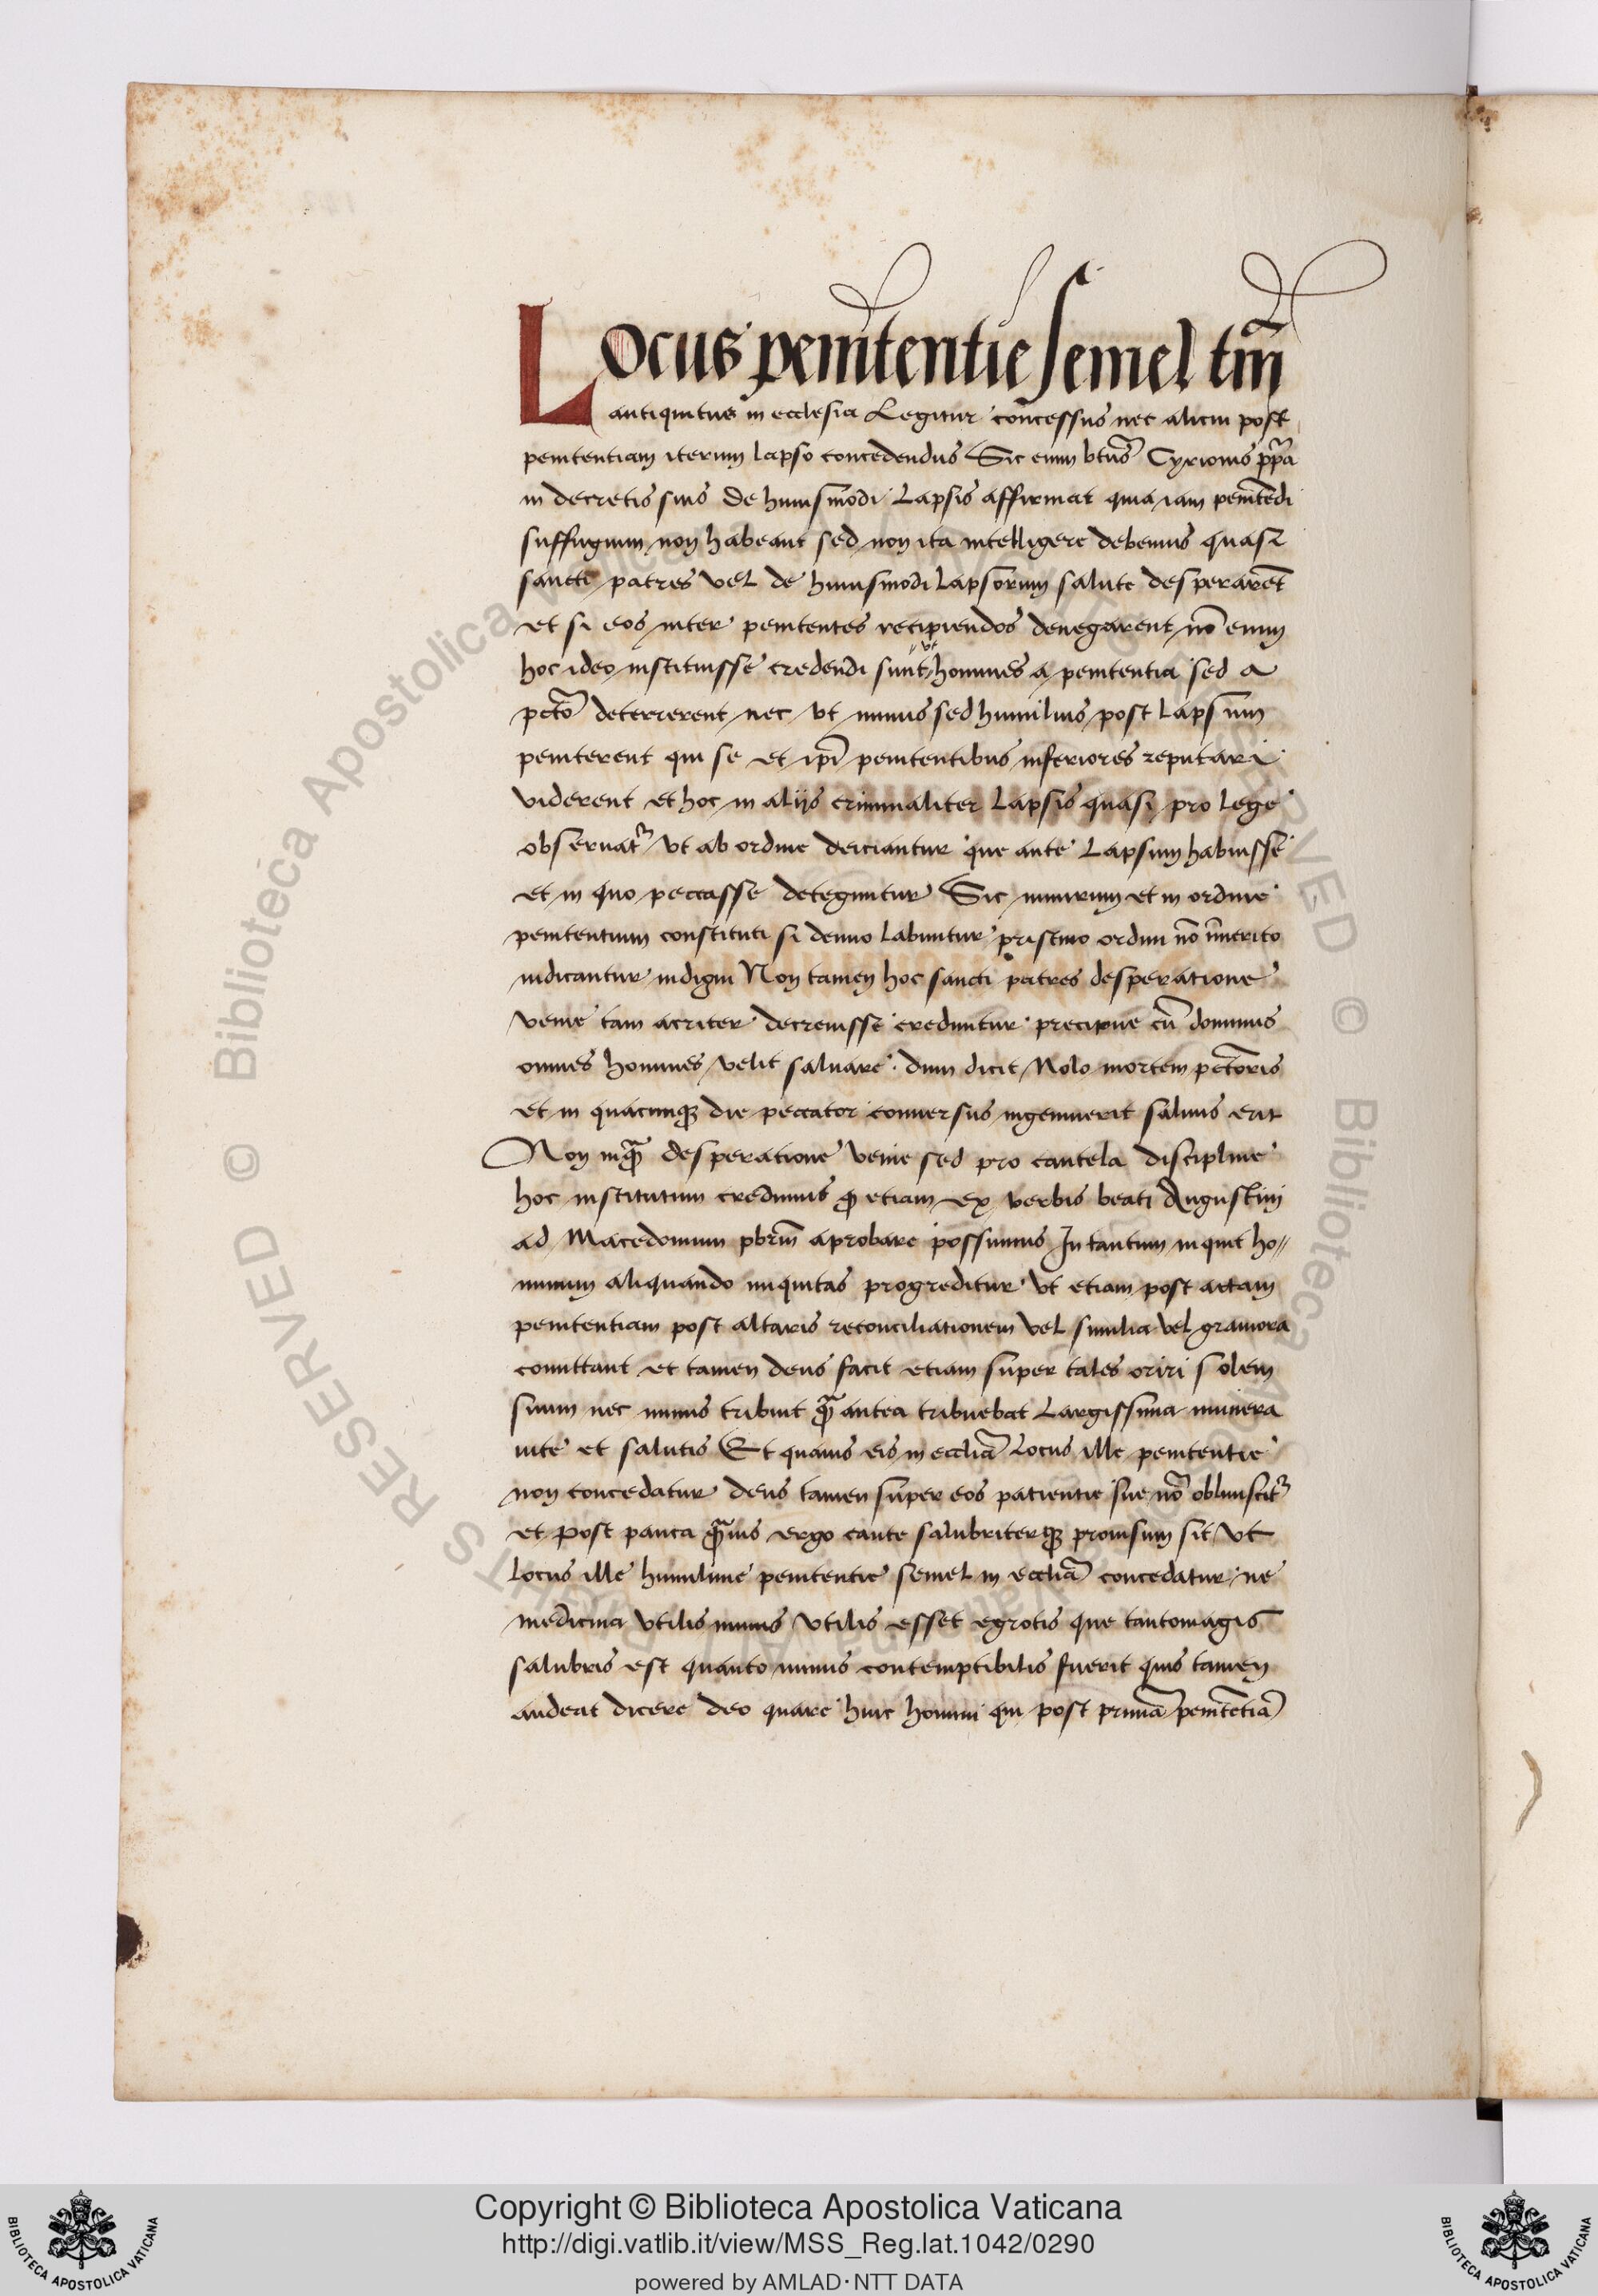 Locus penitentie semel tm̄
antiquitus in ecclesia Legitur concessus nec alicui post
penitentiam iterum lapso concedendus Sic enim btūs Cyrionis pp̄a
in decretis suis De huiusmodi Lapsis affirmat quia iam penitēdi
suffugium non habeant sed non ita intelligere debemus quasi
sancti patres vel de huiusmodi Lapsorum salute desperarēt
et si eos inter penitentes recipiendos denegarent nō enim
hoc ideo instituisse credendi sunt vt homines a penitentia sed a
pctō deterrerent nec vt minus sed humilius post Lapsum
peniterent qui se et ip̄i penitentibus inferiores reputari
viderent et hoc in alijs criminaliter Lapsis quasi pro lege
obseruatr̄ vt ab ordine deiciantur que ante Lapsum habuisse
et in quo peccasse deteguntur Sic nimirum et in ordine
penitentium constituti si denuo labuntur pristino ordini nō īmerito
iudicantur indigni Non tamen hoc sancti patres desperatione
venie tam acriter decreuisse creduntur precipue cū dominus
omnes homines velit saluare dum dicit Nolo mortem pctōris
et in quacunqȝ die peccator conuersus ingemuerit saluus erit
Non inqȝ desperatione venie sed pro cautela discipline
hoc institutum credimus qȝ etiam ex verbis beati Augustini
ad Macedonium pbrm̄ aprobare possumus In tantum inquit ho//
minum aliquando iniquitas progreditur vt etiam post actam
penitentiam post altaris reconciliationem vel similia vel grauiora
comittant et tamen deus facit etiam super tales oriri solem
suum nec minus tribuit qȝ̄ antea tribuebat Largissima munera
uite et salutis Et quamuis eis in eccliā Locus ille penitentie
non concedatur deus tamen super eos patientie sue nō obliuiscitr̄
et post pauca qȝ̄uis ergo caute salubriterqȝ prouisum sit vt
Locus ille humilime penitentie semel in eccliā concedatur ne
medicina vtilis minus vtilis esset egrotis que tantomagis
salubris est quanto minus contemptibilis fuerit quis tamen
audeat dicere deo quare huic homini qui post primā penitētiā
Copyright © Biblioteca Apostolica Vaticana
http://digi.vatlib.it/view/MSS_Reg.lat.1042/0290
powered by AMLAD·NTT DATA
BIBLIOTECA APOSTOLICA VATICANA
BIBLIOTECA APOSTOLICA VATICANA